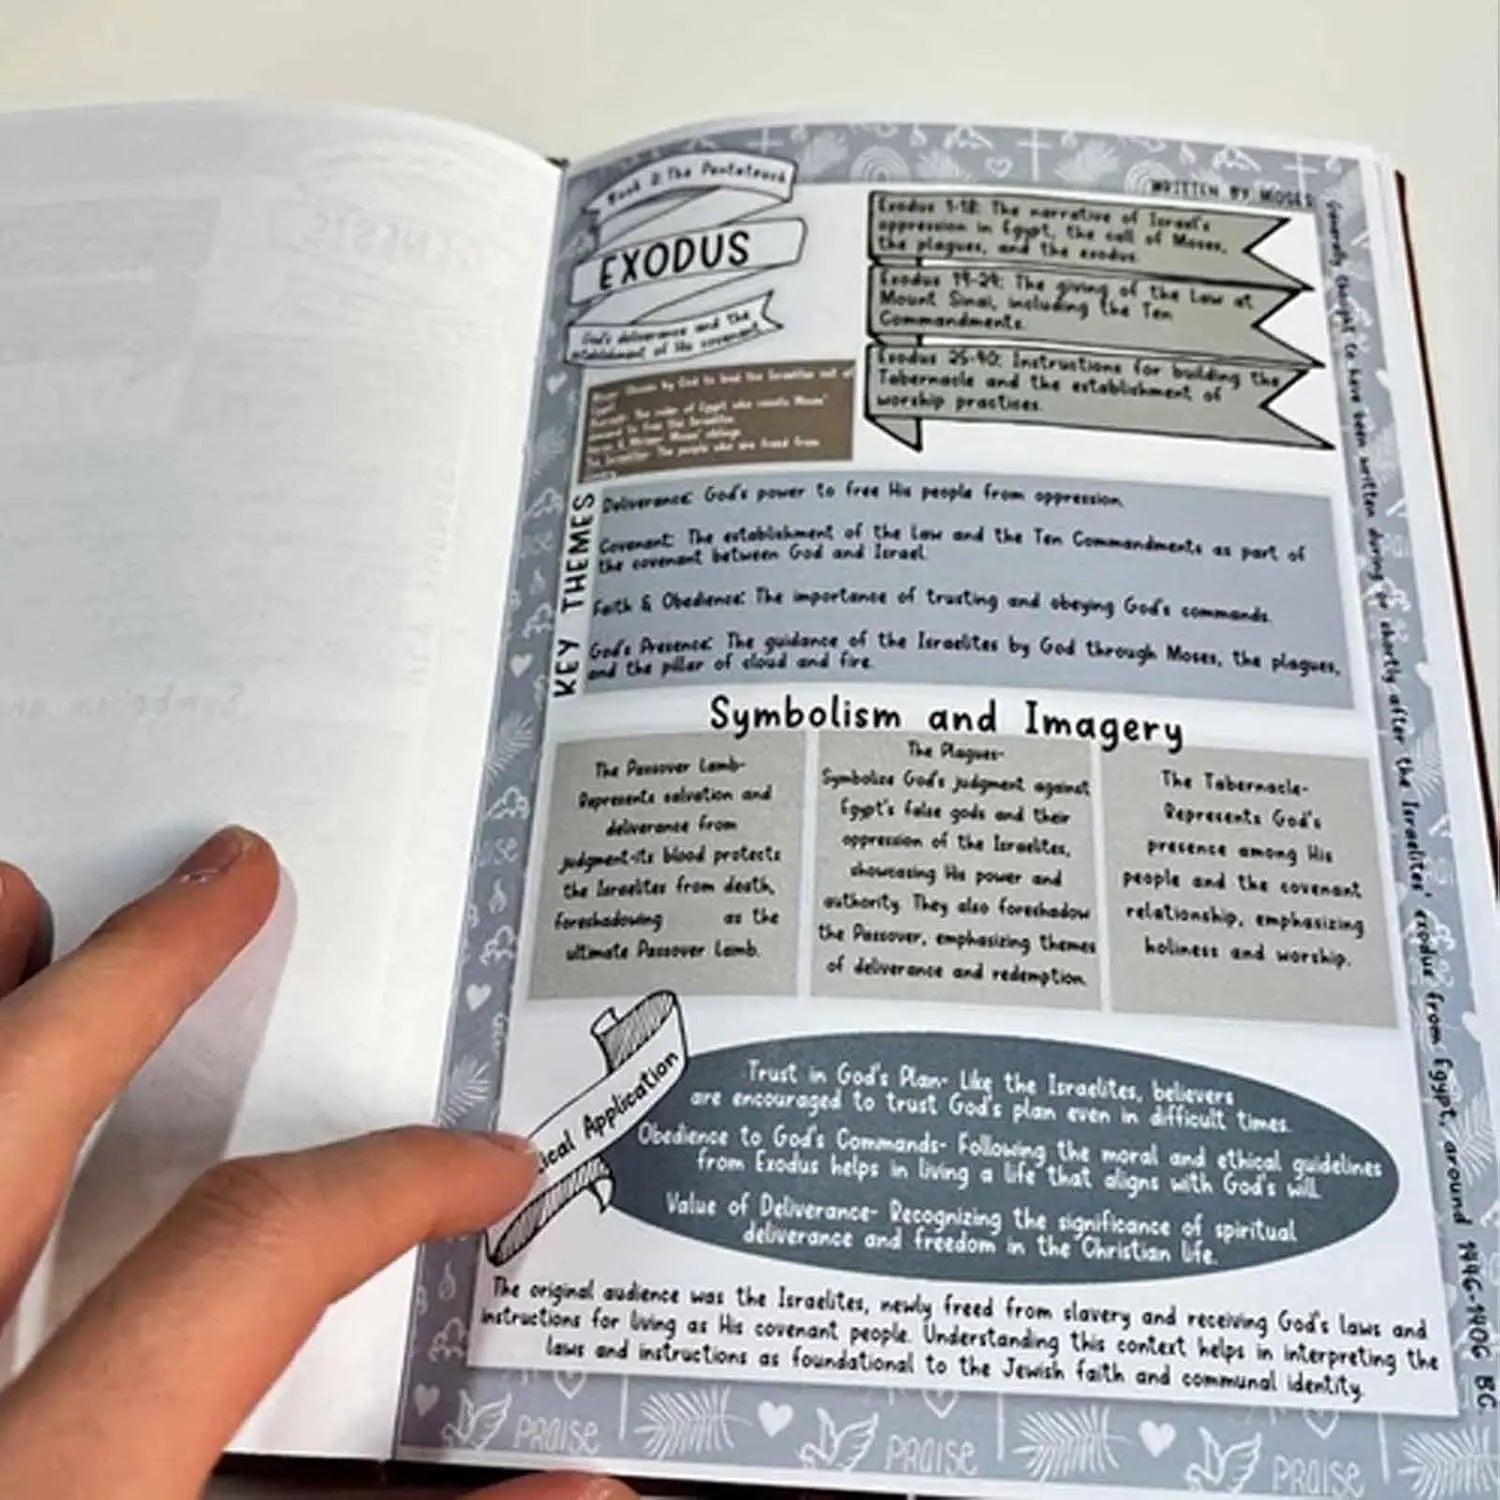 Book 2: The Pentateuch
EXODUS
God's deliverance and the
establishment of His covenant
WRITTEN BY MOSES
Exodus 1-18: The narrative of Israel's
oppression in Egypt, the call of Moses,
the plagues, and the exodus.
Exodus 19-24: The giving of the Law at
Mount Sinai, including the Ten
Commandments.
Exodus 25-40: Instructions for building the
Tabernacle and the establishment of
worship practices.
Chosen by God to lead the Israelites out of
The ruler of Egypt who resists Moses'
demand to free the Israelites.
Moses' siblings.
The Israelites: The people who are freed from
KEY THEMES
Deliverance: God's power to free His people from oppression.
Covenant: The establishment of the Law and the Ten Commandments as part of
the covenant between God and Israel.
Faith & Obedience: The importance of trusting and obeying God's commands.
God's Presence: The guidance of the Israelites by God through Moses, the plagues,
and the pillar of cloud and fire.
Symbolism and Imagery
The Passover Lamb-
Represents salvation and
deliverance from
judgment-its blood protects
the Israelites from death,
foreshadowing as the
ultimate Passover Lamb.
The Plagues-
Symbolize God's judgment against
Egypt's false gods and their
oppression of the Israelites,
showcasing His power and
authority. They also foreshadow
the Passover, emphasizing themes
of deliverance and redemption.
The Tabernacle-
Represents God's
presence among His
people and the covenant
relationship, emphasizing
holiness and worship.
ical Application
Trust in God's Plan- Like the Israelites, believers
are encouraged to trust God's plan even in difficult times.
Obedience to God's Commands- Following the moral and ethical guidelines
from Exodus helps in living a life that aligns with God's will.
Value of Deliverance- Recognizing the significance of spiritual
deliverance and freedom in the Christian life.
The original audience was the Israelites, newly freed from slavery and receiving God's laws and
instructions for living as His covenant people. Understanding this context helps in interpreting the
laws and instructions as foundational to the Jewish faith and communal identity.
Generally thought to have been written during or shortly after the Israelites' exodus from Egypt, around 1446-1406 BC.
PRAISE
PRAISE
PRAISE